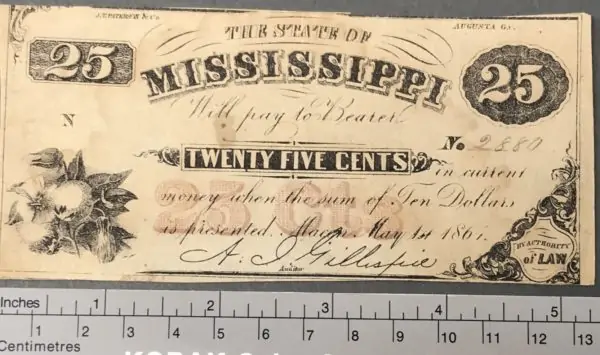 J. PATERSON & Co.
AUGUSTA GA.
THE STATE OF
25
MISSISSIPPI
25
Will pay to Bearer
N
No. 2880
TWENTY FIVE CENTS
in current
25 Cts
money when the sum of Ten Dollars
is presented. Macon. May 1st 186
A. J. Gillespie
Auditor
BY AUTHORITY
of LAW
Inches 1 2 3 4 5
1 2 3 4 5 6 7 8 9 10 11 12 13
Centimetres
KODAK